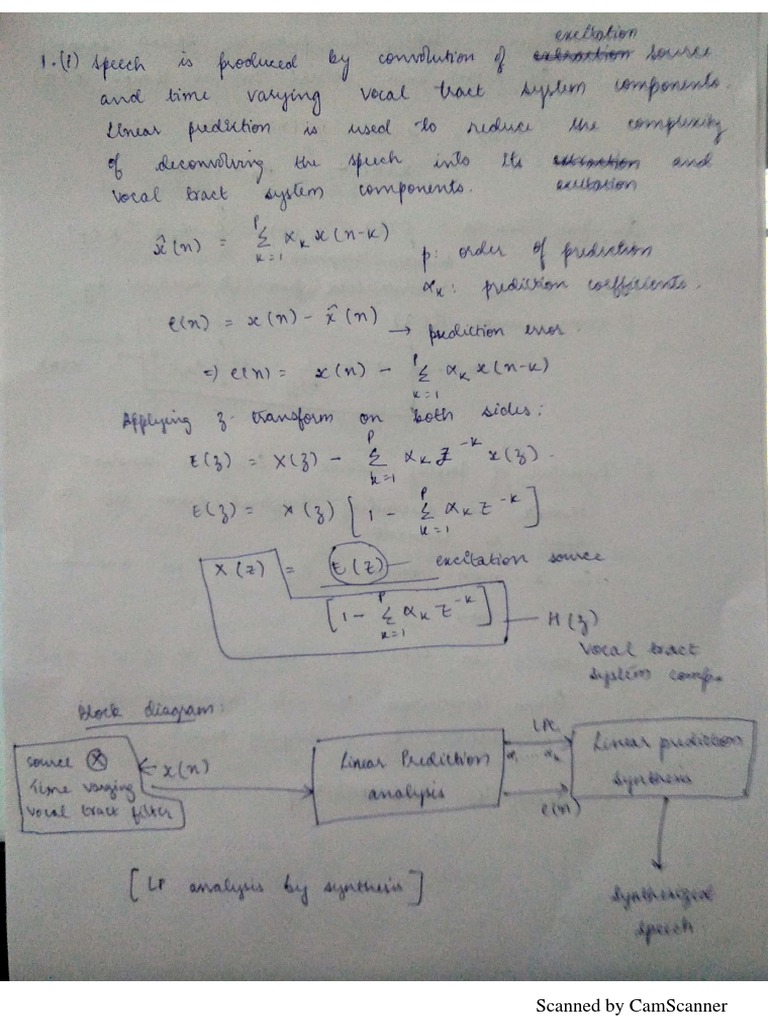 excitation
1.(i) Speech is produced by convolution of extraction source
and time varying vocal tract system components.
Linear prediction is used to reduce the complexity
of deconvolving the speech into its extraction and
vocal tract system components. excitation
x̂(n) = Σ_{k=1}^{P} α_k x(n-k)
p: order of prediction
α_k: prediction coefficients.
e(n) = x(n) - x̂(n) → prediction error.
⇒ e(n) = x(n) - Σ_{k=1}^{P} α_k x(n-k)
Applying z-transform on both sides:
E(z) = X(z) - Σ_{k=1}^{P} α_k z^{-k} x(z).
E(z) = X(z) [1 - Σ_{k=1}^{P} α_k z^{-k}]
X(z) = E(z) — excitation source
[1 - Σ_{k=1}^{P} α_k z^{-k}] — H(z)
Vocal tract
system comp.
Block diagram:
source ⊗
Time varying
vocal tract filter
x(n)
Linear Prediction
analysis
LPC
α₁ .... α_k
e(n)
Linear prediction
synthesis
[LP analysis by synthesis]
Synthesized
speech
Scanned by CamScanner